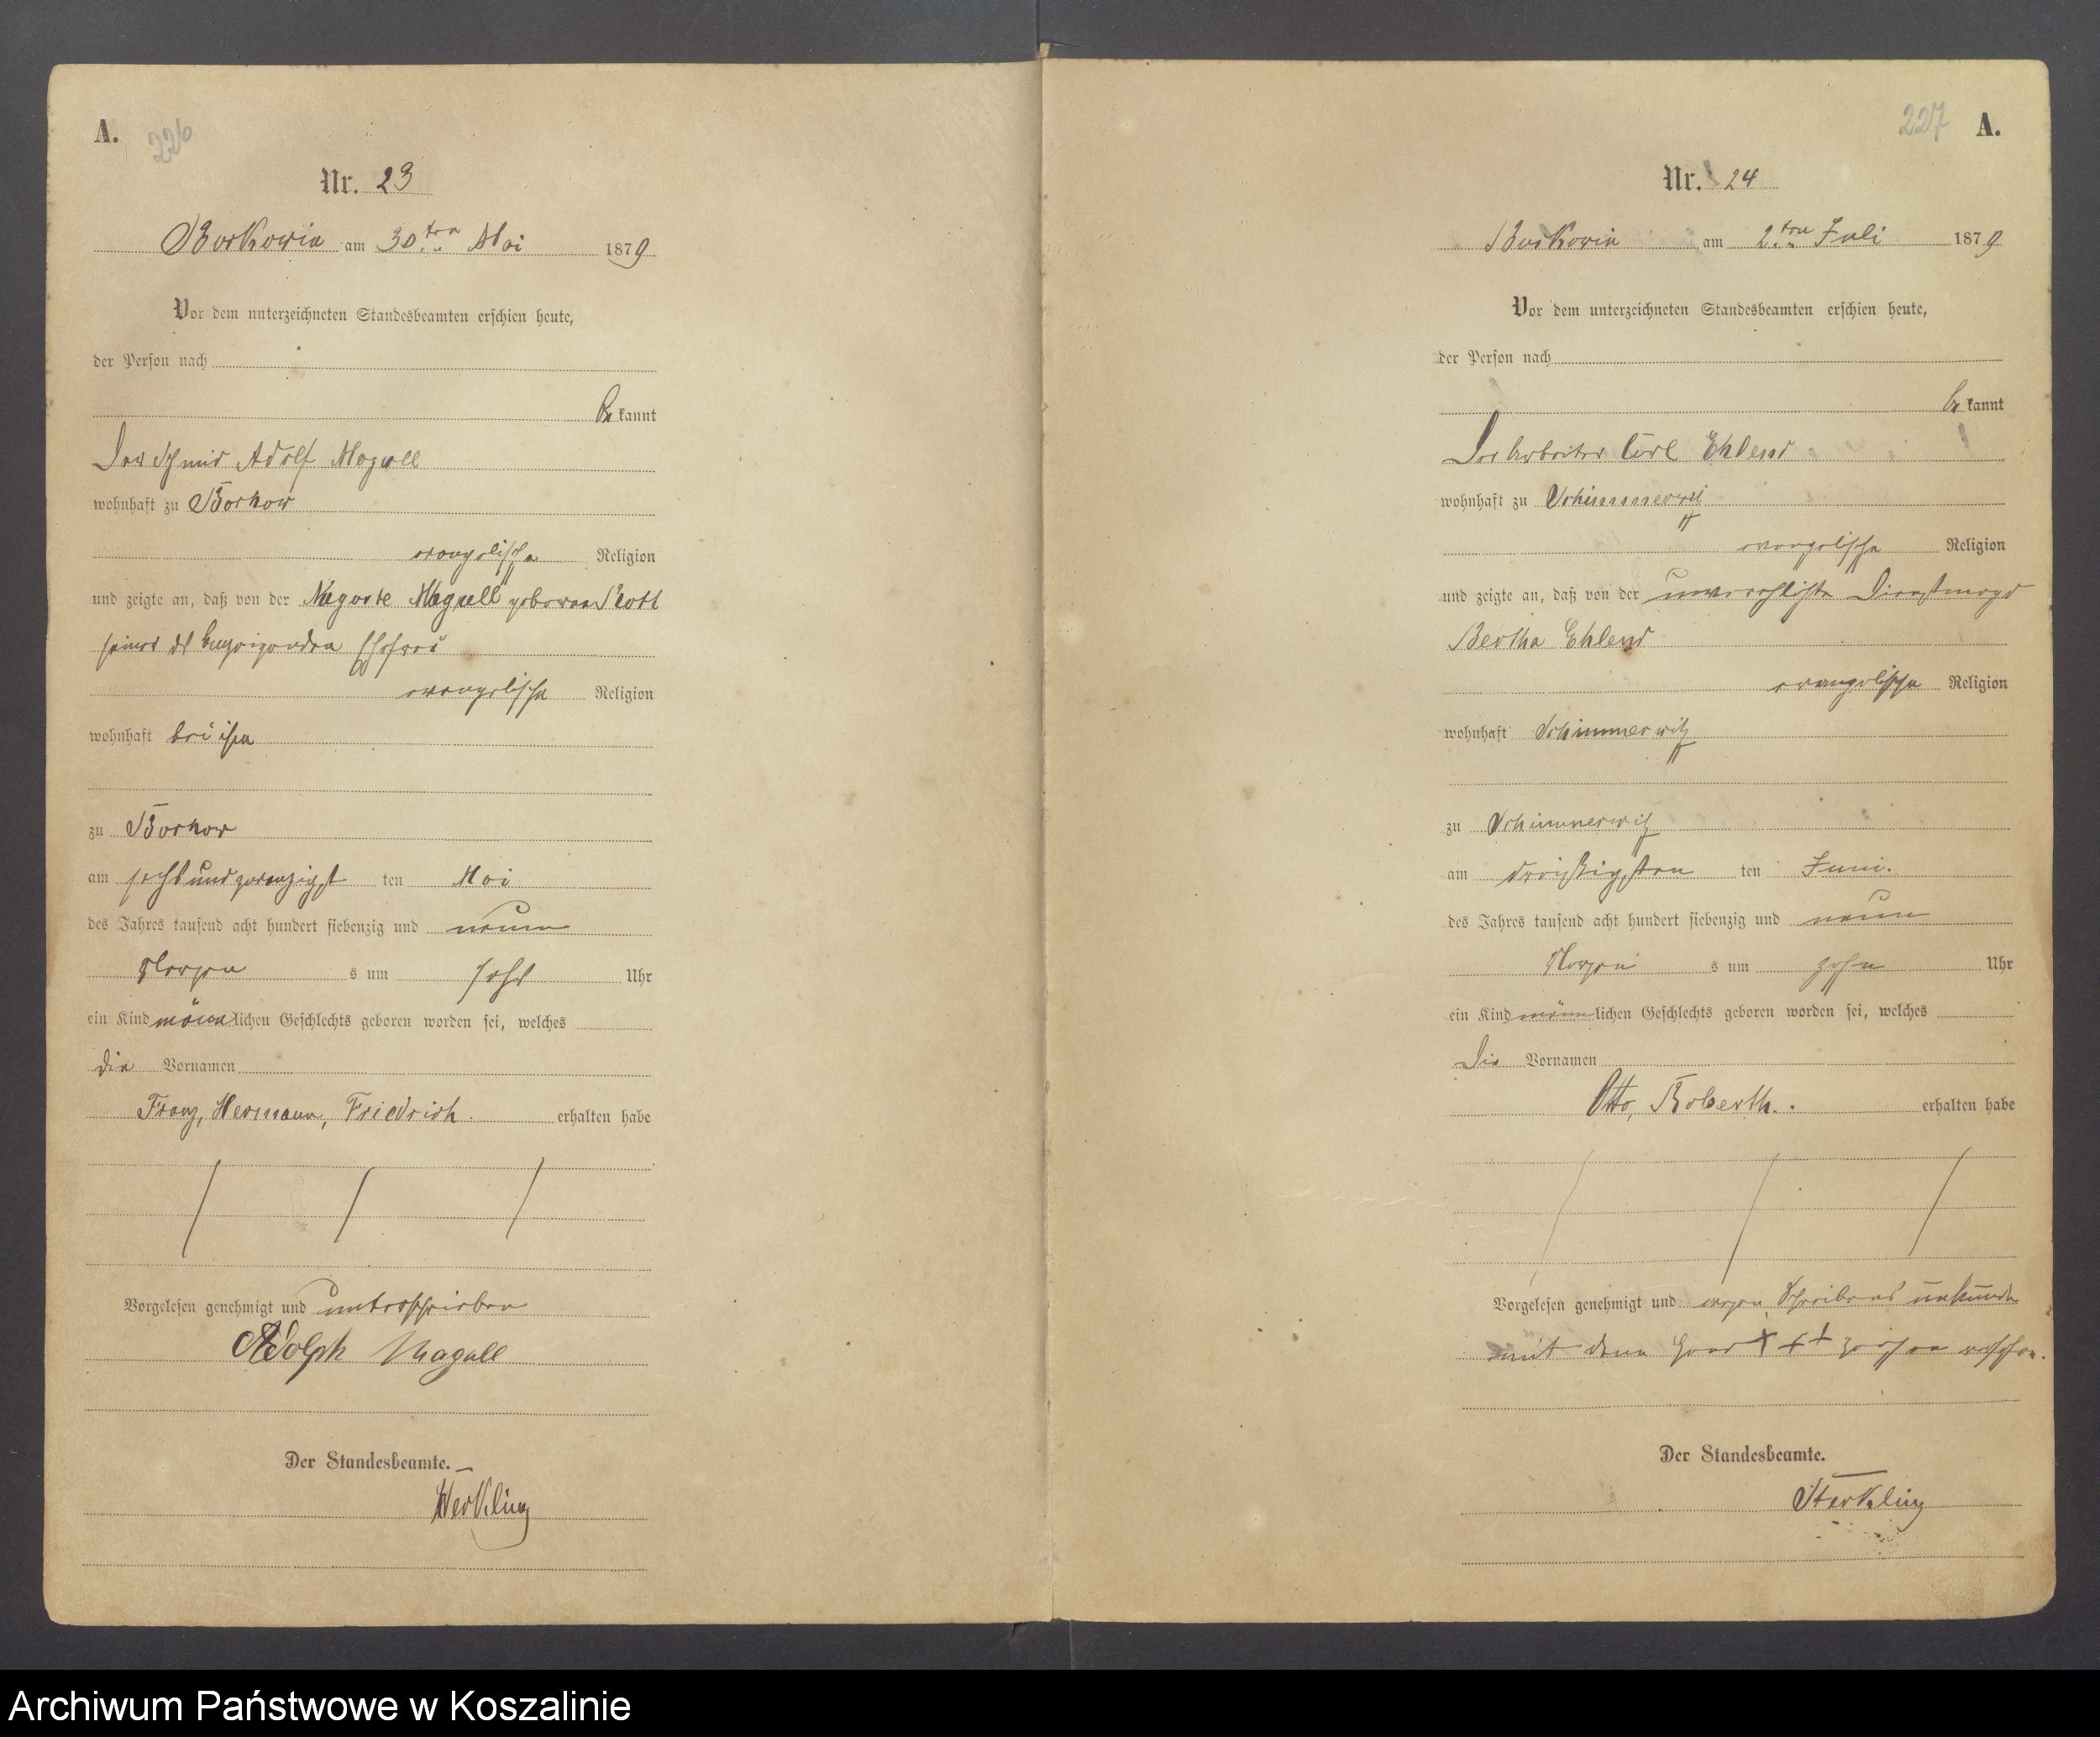 A. 226
Nr. 23
Burkowin am 30ten Mai 1879
Vor dem unterzeichneten Standesbeamten erschien heute,
der Person nach
be kannt
Der Schmid Adolf Magull
wohnhaft zu Borkow
evangelische Religion
und zeigte an, daß von der Auguste Magull geborenen
seiner des Anzeigenden Ehefrau
evangelische Religion
wohnhaft bei ihm
zu Borkow
am sechsundzwanzigst ten Mai
des Jahres tausend acht hundert siebenzig und neun
Morgen s um sechs Uhr
ein Kind männlichen Geschlechts geboren worden sei, welches
die Vornamen
Franz, Hermann, Friedrich. erhalten habe
Vorgelesen genehmigt und unterschrieben
Adolph Magull
Der Standesbeamte.
227 A.
Nr. 24
Burkowin am 2ten Juli 1879
Vor dem unterzeichneten Standesbeamten erschien heute,
der Person nach
be kannt
Der Arbeiter Carl Ehlend
wohnhaft zu Schimmerwitz
evangelische Religion
und zeigte an, daß von der unverehlichte Dienstmagd
Bertha Ehlend
evangelische Religion
wohnhaft Schimmerwitz
zu Schimmerwitz
am dreißigsten ten Juni.
des Jahres tausend acht hundert siebenzig und neun
Morgen s um zehn Uhr
ein Kind männlichen Geschlechts geboren worden sei, welches
Die Vornamen
Otto, Roberth. erhalten habe
Vorgelesen genehmigt und wegen Schreibens unkunde
mit dem Hand +++ zeichen versehen.
Der Standesbeamte.
Sterkling
Archiwum Państwowe w Koszalinie